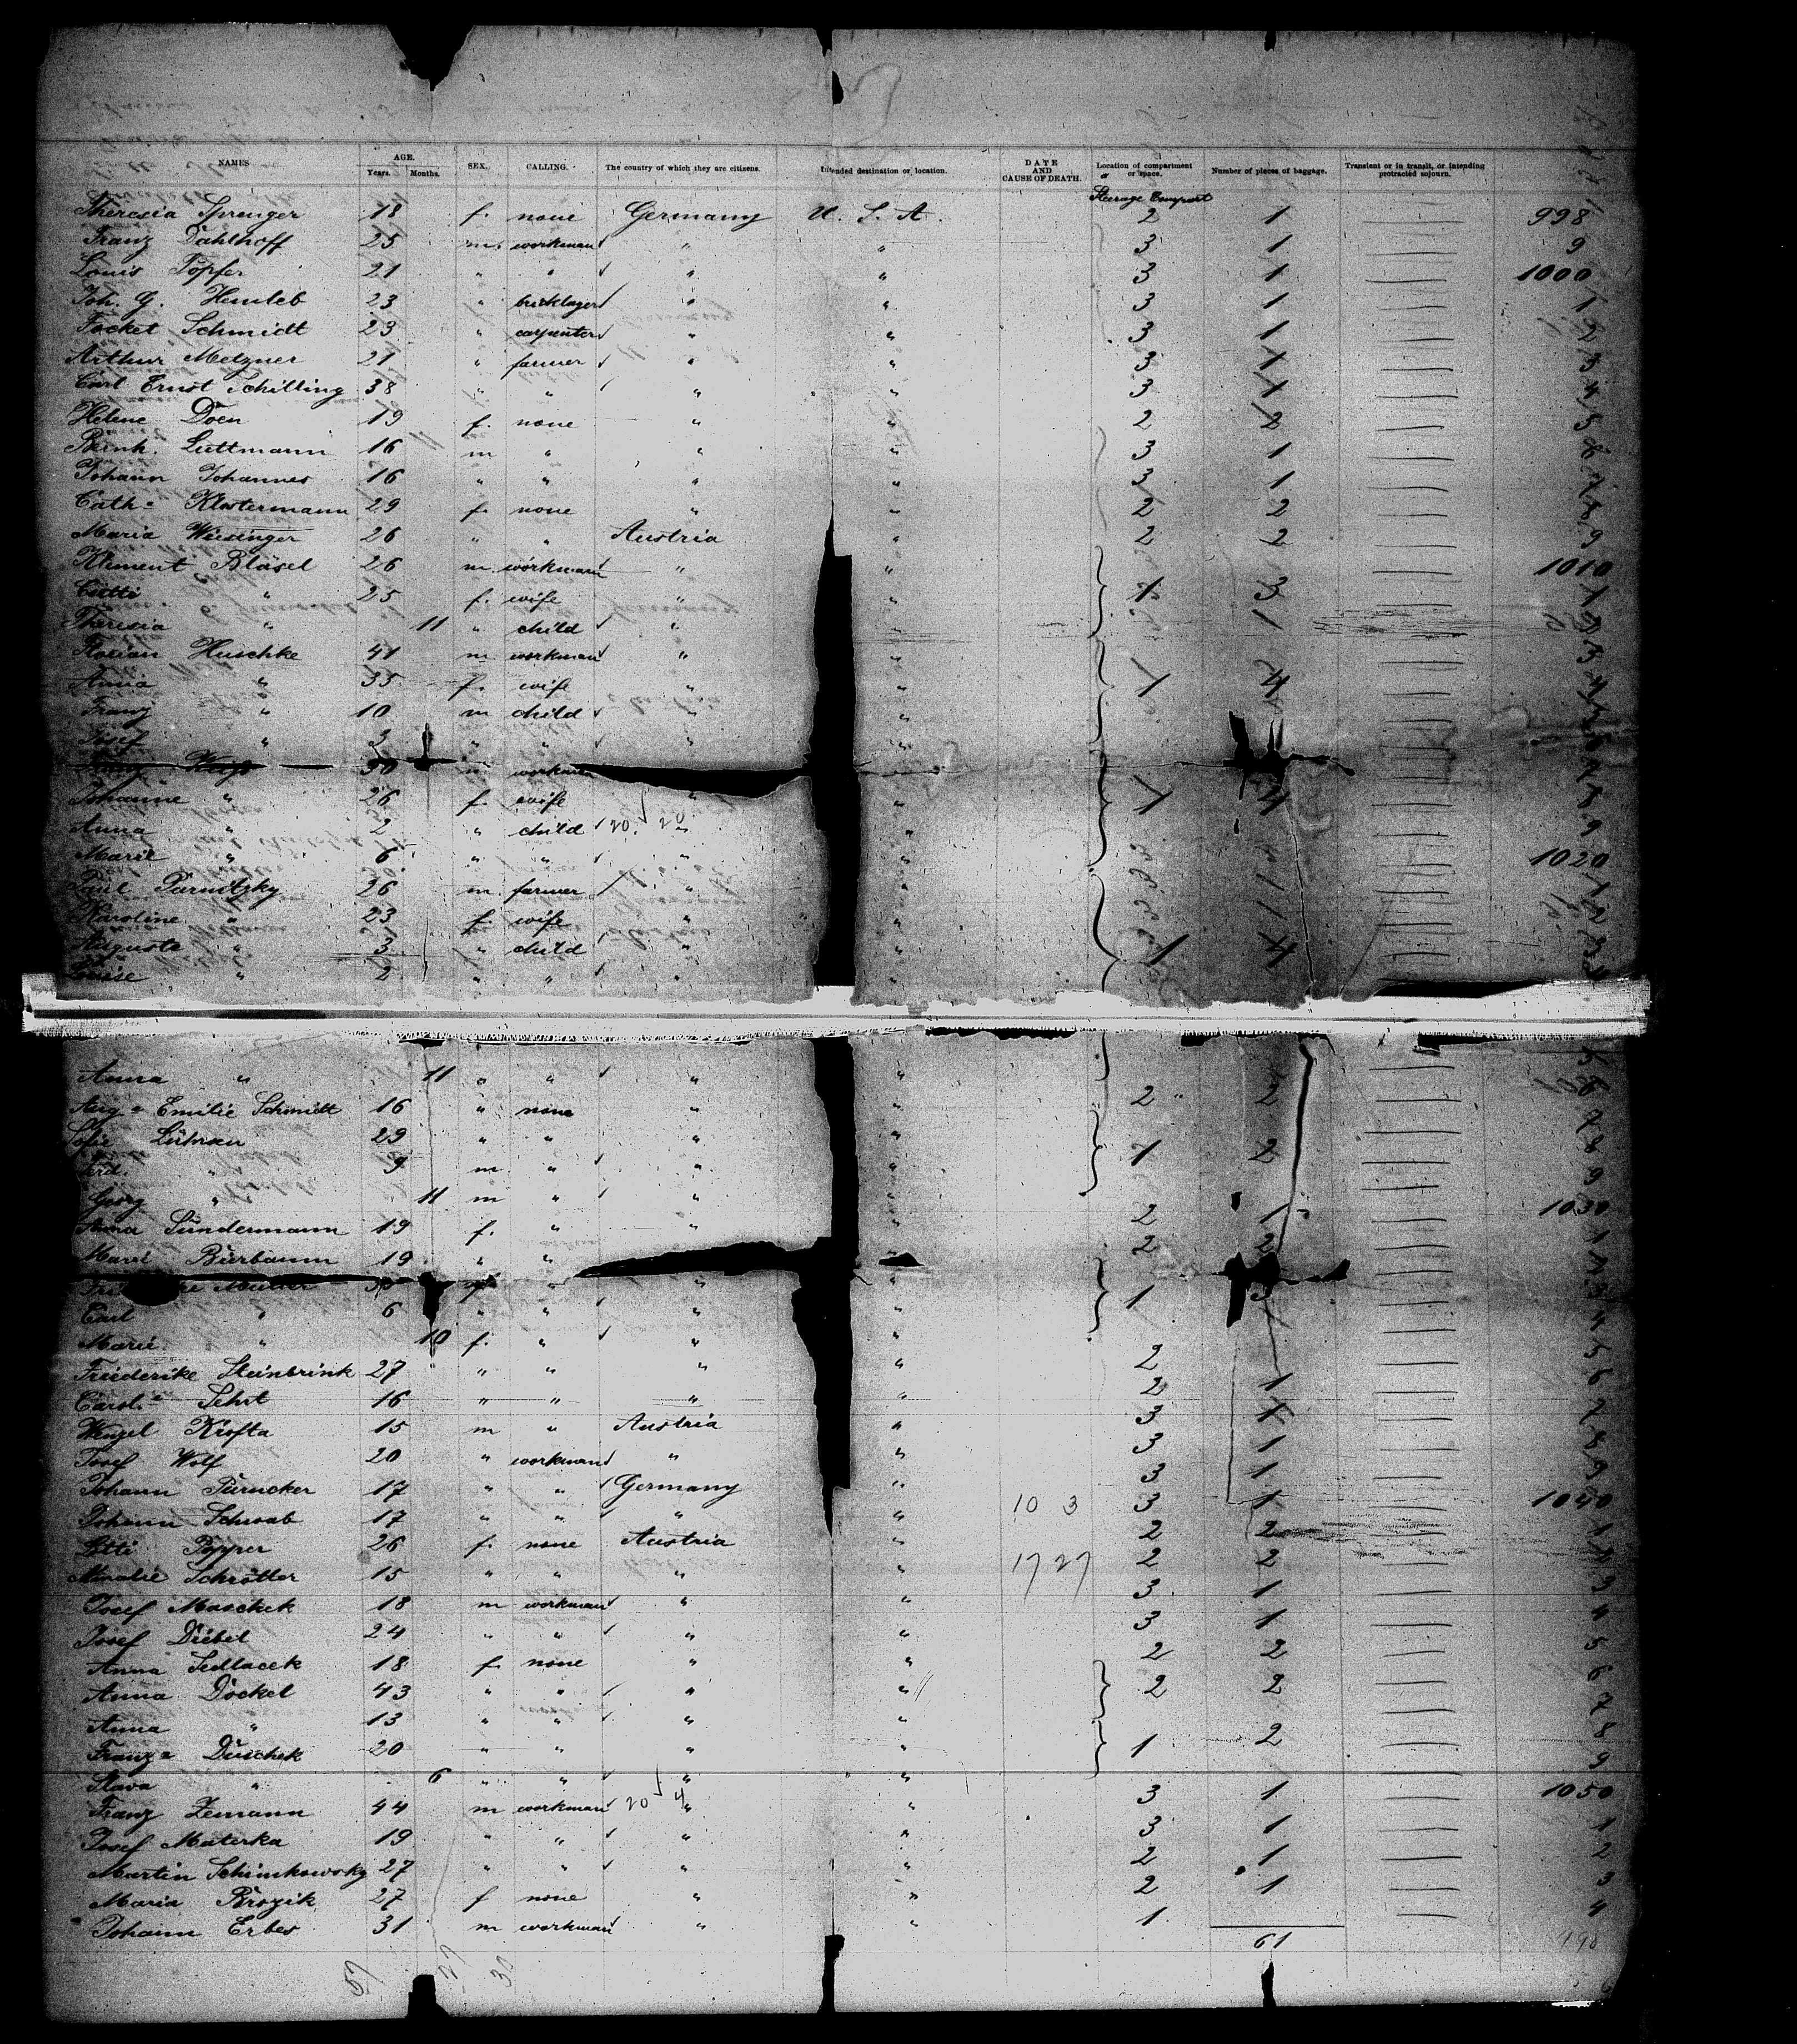 NAMES AGE. Years. Months. SEX. CALLING. The country of which they are citizens. Intended destination or location. DATE AND CAUSE OF DEATH. Location of compartment or space. Number of pieces of baggage. Transient or in transit, or intending protracted sojourn.
Steerage Compart
Theresia Sprenger 18 f. none Germany U. S. A. 2 1 998
Franz Dahlhoff 25 m. workman " " 3 1 9
Louis Töpfer 21 " " " " 3 1 1000
Joh. G. Hemleb 23 " bricklayer " " 3 1 1
Focket Schmidt 23 " carpenter " " 3 1 2
Arthur Metzner 21 " farmer " " 3 1 3
Carl Ernst Schilling 38 " " " " 3 1 4
Helene Doen 19 f. none " " 2 2 5
Luttmann 16 m " " " 3 1 6
Johann Johannes 16 " " " " 3 1 7
Cath. Klostermann 29 f. none " " 2 2 8
Maria Wiesinger 26 " " Austria " 2 2 9
Klement Bläsel 26 m. workman " " 1010
" 25 f. wife " " 1 3 1
Theresia " 11 " child " " 1 2
Florian Huschke 41 m workman " " 3
Anna " 35 f. wife " " 1 4 4
Franz " 10 m child " " 5
Josef " 3 " " " " 6
30 m workman 7
Johanne " 26 f. wife " " 1 4 8
Anna " 2 " child 20 20 " " 9
Marie " 6 " " " " 1020
Paul Parnitzky 26 m. farmer " " 1
Karoline " 23 f. wife " " 2
Auguste " 3 " child " " 1 4 3
Louise " 2 " " " "
Anna " 11 " " " "
Aug. Emilie Schmidt 16 " none " " 2 2
Sofie Lührsen 29 " " " " 7
Ferd. " 9 m " " " 1 2 8
Georg " 11 m " " " 9
Anna Sündermann 19 f. " " " 2 1 1030
Marie Bierbaum 19 " " " 2 2 1
Müller " "
Carl " 6 " " " " 1 3
Marie " 10 f. " " " 4
Friederike Steinbrink 27 " " " " 2 5
Carol. Sehrt 16 " " " " 2 1 6
Wenzel Krofta 15 m " Austria " 3 1 7
Josef Wolf 20 " workman " " 3 1 8
Johann Türncker 17 " " Germany " 3 1 9
Johann Schwab 17 " " " " 10 3 3 1 1040
Popper 26 f. none Austria " 2 2 1
Schrötter 15 " " " " 17 27 2 2 2
Josef Maschek 18 m workman " " 3 1 3
Josef Diebel 24 " " " " 3 1 4
Anna Sedlacek 18 f none " " 2 2 5
Anna Döckel 43 " " " " 2 2 6
Anna " 13 " " " " 7
Franz. Duschek 20 " " " " 1 2 8
Slava " 6 " " " " 9
Franz Zemann 44 m workman 20 4 " " 3 1 1050
Josef Materka 19 " " " " 3 1 1
Martin Schimkowsky 27 " " " " 2 1 2
Maria Brozik 27 f none " " 2 1 3
Johann Erbes 31 m workman " " 1 4
61
57 27 30